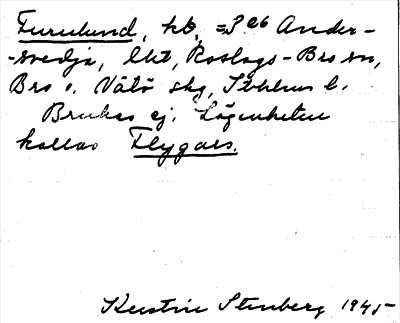 Furulund, hb, = 3ᵃᵇ Ander-
-svedja, lht, Roslags-Bro sn,
Bro o. Vätö skg, Sthlms l.
Brukas ej. Lägenheten
kallas Flygars.
Kerstin Stenberg 1945